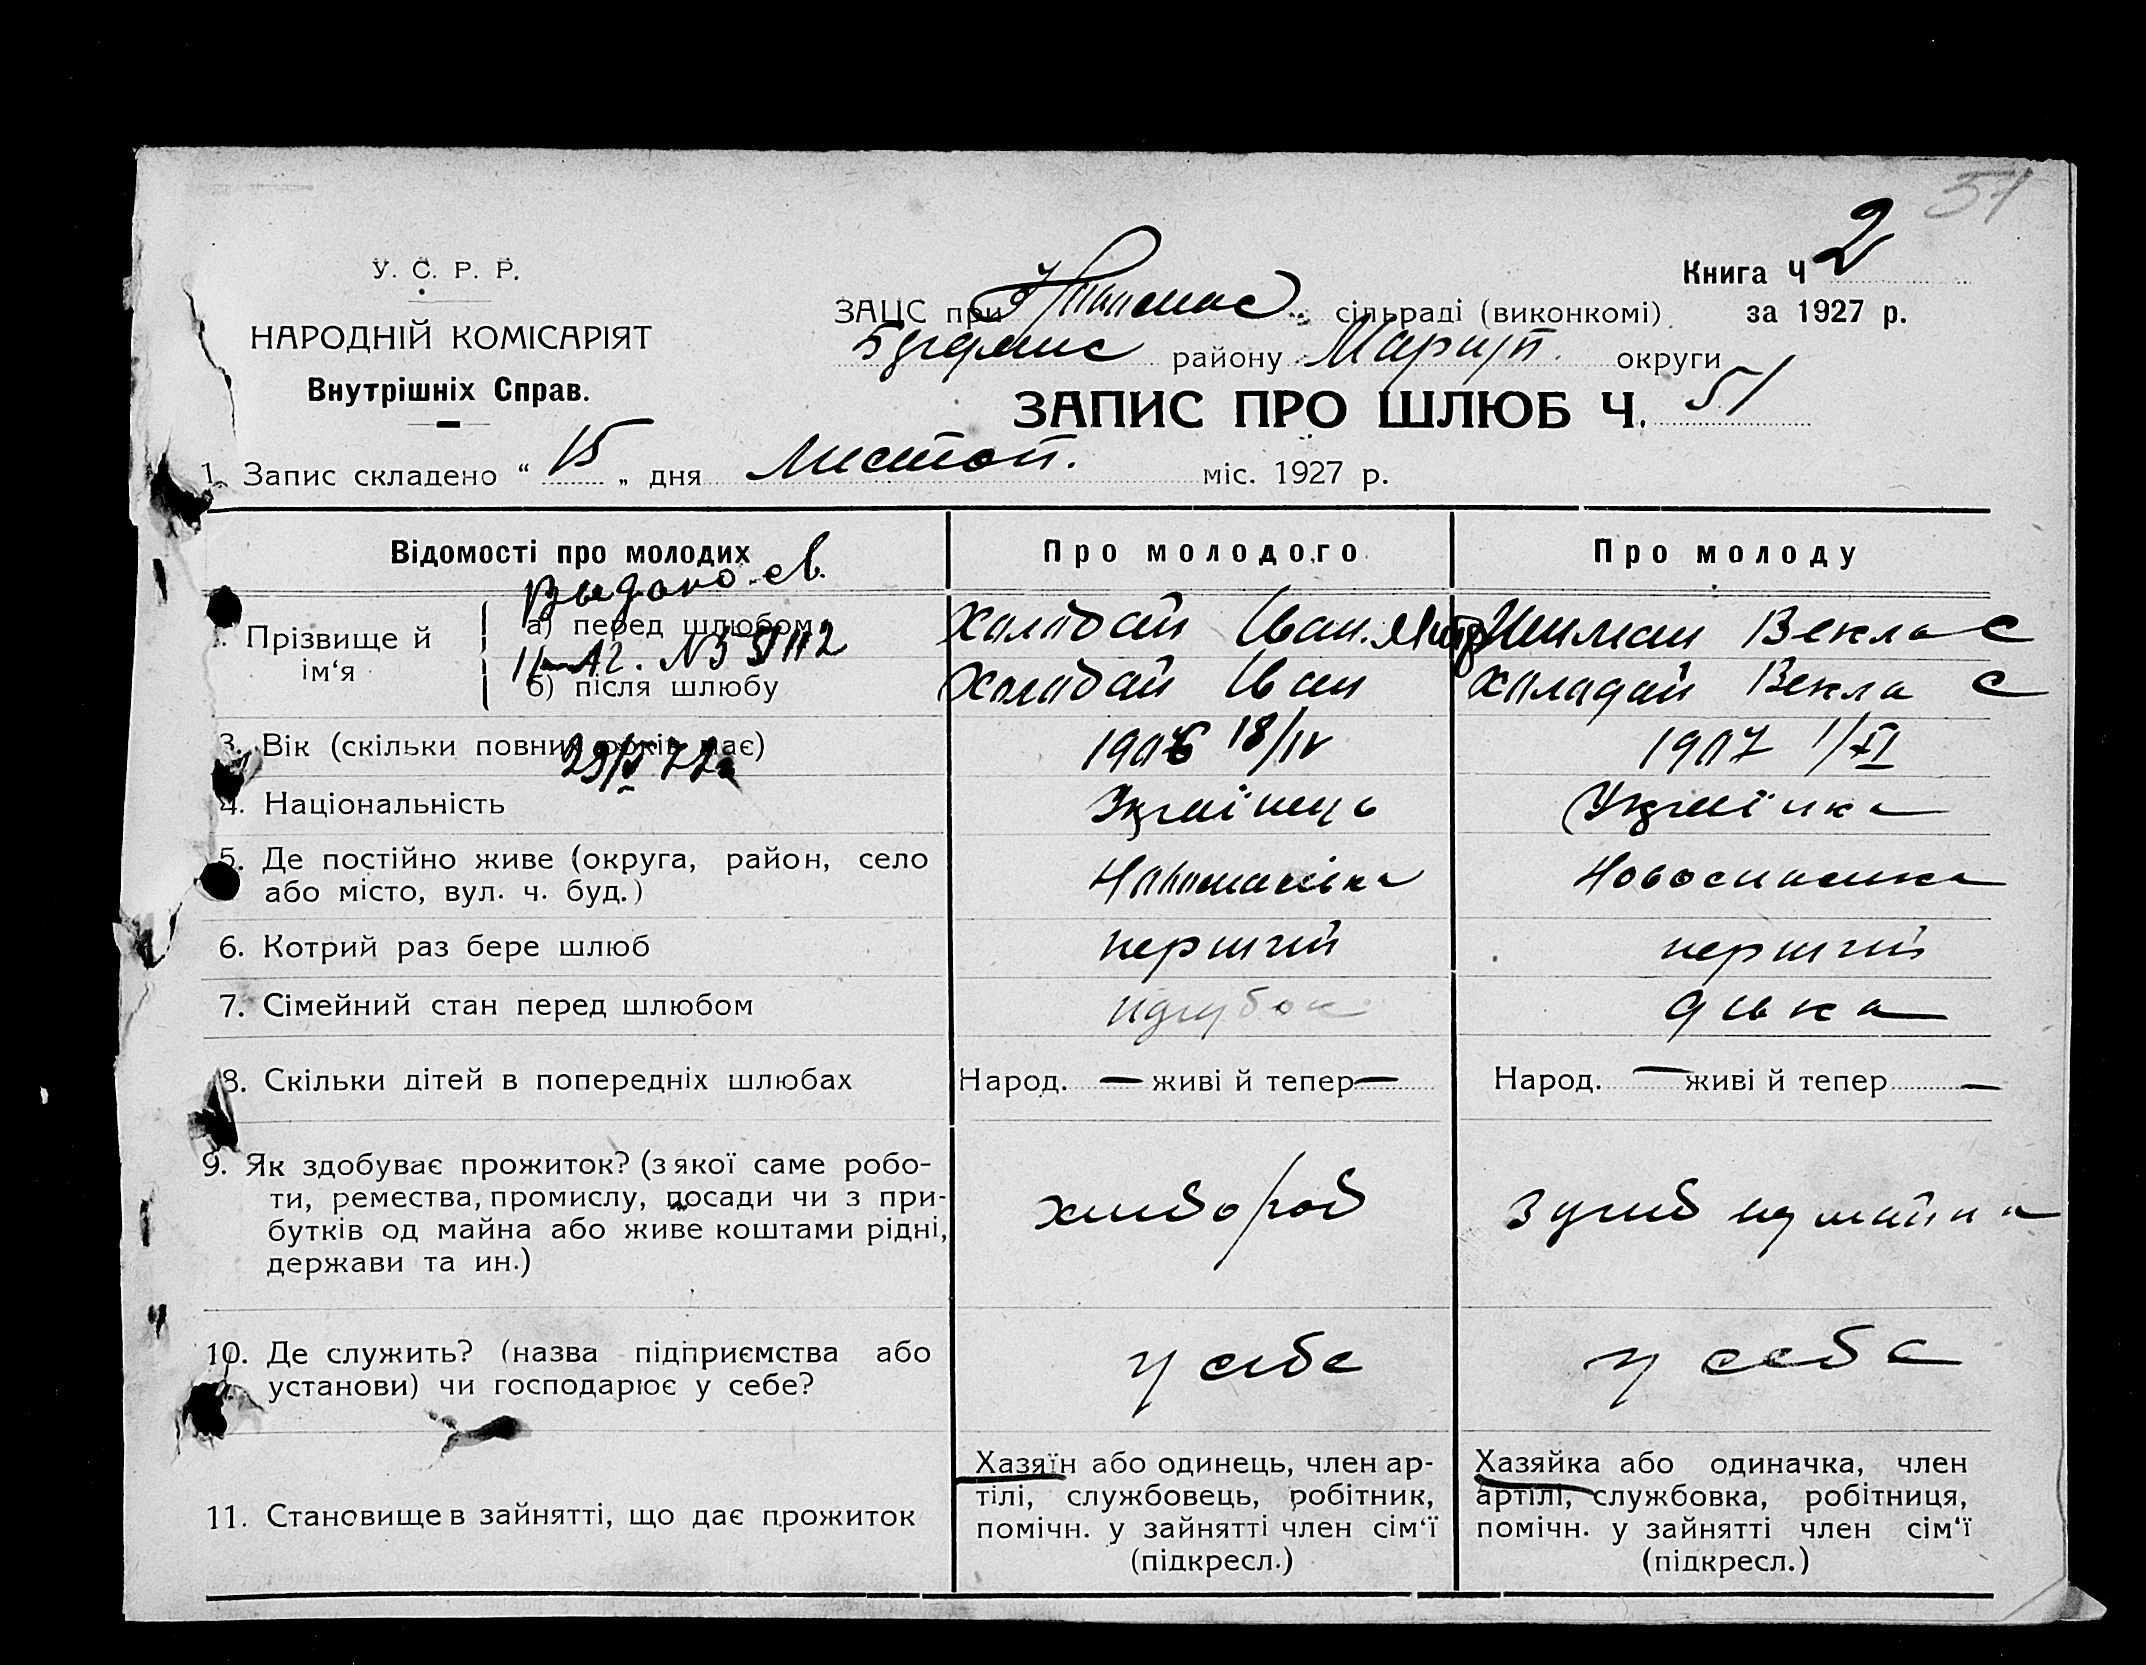 51
У. С. Р. Р.
НАРОДНІЙ КОМІСАРІЯТ
Внутрішніх Справ.
Книга Ч 2
за 1927 р.
ЗАЦС при сільраді (виконкомі)
району Маріуп. округи
ЗАПИС ПРО ШЛЮБ Ч. 51
1. Запис складено “ 15 „ дня Листоп. міс. 1927 р.
Відомості про молодих
Про молодого
Про молоду
Выдано св.
Прізвище й ім‘я
а) перед шлюбом
Холодай Іван
Векла С
II-АГ. №
б) після шлюбу
Холодай Іван
Холодай Векла С
3. Вік (скільки повних років має)
1906 18/IV
1907 1/XI
4. Національність
Українець
Українка
5. Де постійно живе (округа, район, село
або місто, вул. ч. буд.)
Новоспасівка
6. Котрий раз бере шлюб
перший
перший
7. Сімейний стан перед шлюбом
парубок
дівка
8. Скільки дітей в попередніх шлюбах
Народ. — живі й тепер —
Народ. — живі й тепер —
9. Як здобуває прожиток? (з якої саме робо-
ти, ремества, промислу, посади чи з при-
бутків од майна або живе коштами рідні,
держави та ин.)
хлібороб
10. Де служить? (назва підприємства або
установи) чи господарює у себе?
у себе
у себе
11. Становище в зайнятті, що дає прожиток
Хазяїн або одинець, член ар-
тілі, службовець, робітник,
помічн. у зайнятті член сім‘ї
(підкресл.)
Хазяйка або одиначка, член
артілі, службовка, робітниця,
помічн. у зайнятті член сім‘ї
(підкресл.)